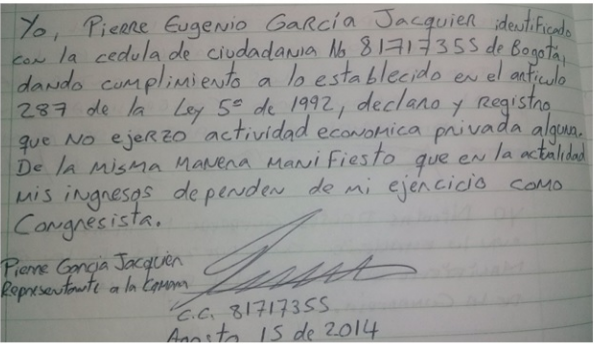 Yo, Pierre Eugenio García Jacquier identificado
con la cedula de ciudadania No 81717355 de Bogotá,
dando cumplimiento a lo establecido en el articulo
287 de la Ley 5ª de 1992, declaro y Registro
que NO ejerzo actividad economica privada alguna.
De la misma manera manifiesto que en la actualidad
mis ingresos dependen de mi ejercicio como
Congresista.
Pierre García Jacquier
Representante a la Camara
C.C. 81717355
Agosto 15 de 2014